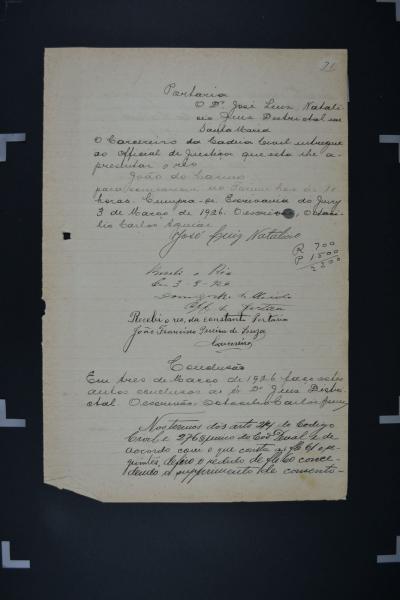 21
Portaria
O Dr. José Luiz Natali
cio Juiz Districtal em
Santa Maria
O Carcereiro da Cadeia Civil entregue
ao Official de Justiça que esta lhe a-
presentar o réo
João do Carmo
para comparecer no Forum hoje ás 11
horas. Cumpra-se. Escrivania do Jury
3 de Março de 1926. O escrivão, Octaci-
lio Carlos Aguiar
José Luiz Natalicio
R 700
P 1500
2200
Recebi o Réo
Em 3-3-926
Off. de Justiça
Recebi o reo, da constante Portaria
João Francisco Pereira de Souza
Carcereiro
Conclusão
Em tres de Março de 1926 faço estes
autos conclusos ao Dr. Juiz Distri-
ctal. O escrivão Octacilio Carlos Aguiar
Nos termos dos arts do Codigo
Civil e 276 do Cod Penal e de
accordo com o que consta a fls 61 e se-
guintes, defiro o pedido de fls 60 conce-
dendo o supprimento de consenti-